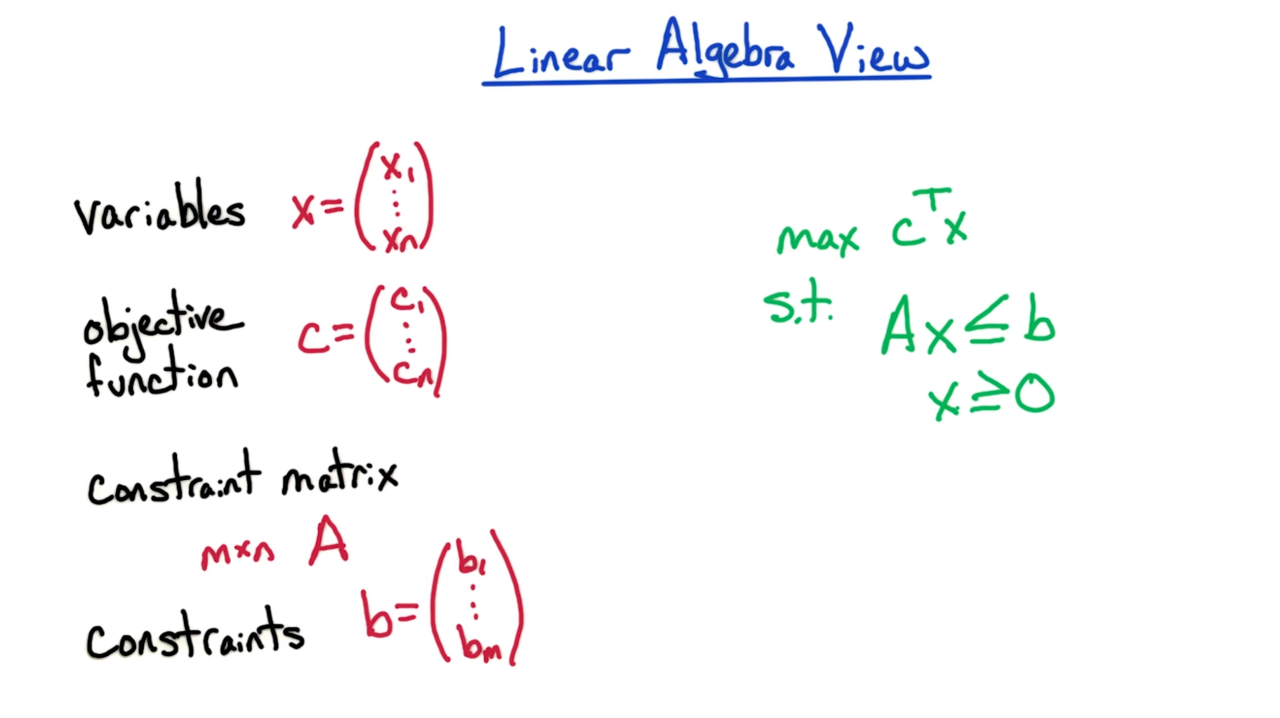 Linear Algebra View
variables x = (x₁ ⋮ xₙ)
objective function c = (c₁ ⋮ cₙ)
constraint matrix
m×n A
constraints b = (b₁ ⋮ bₘ)
max cᵀx
s.t. Ax ≤ b
x ≥ 0